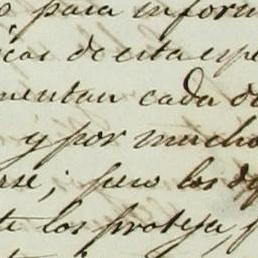 para inform
icas de esta espe
mentan cada d
y por mucho
rse; pero los de
te los proteja,